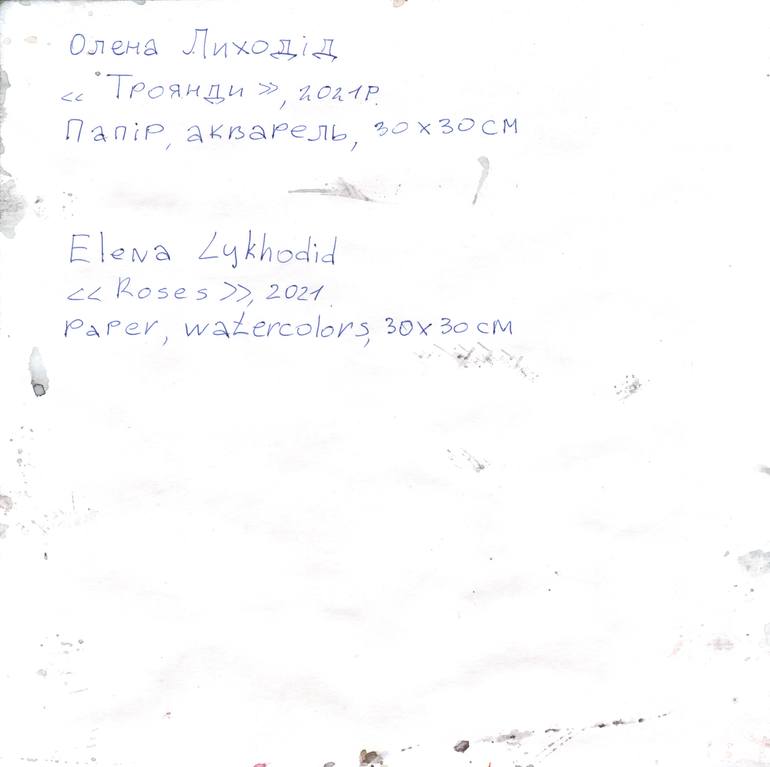 Олена Лиходід
<< Троянди >>, 2021р.
Папір, акварель, 30x30 см
Elena Lykhodid
<< Roses >>, 2021.
paper, watercolors, 30x30 cm